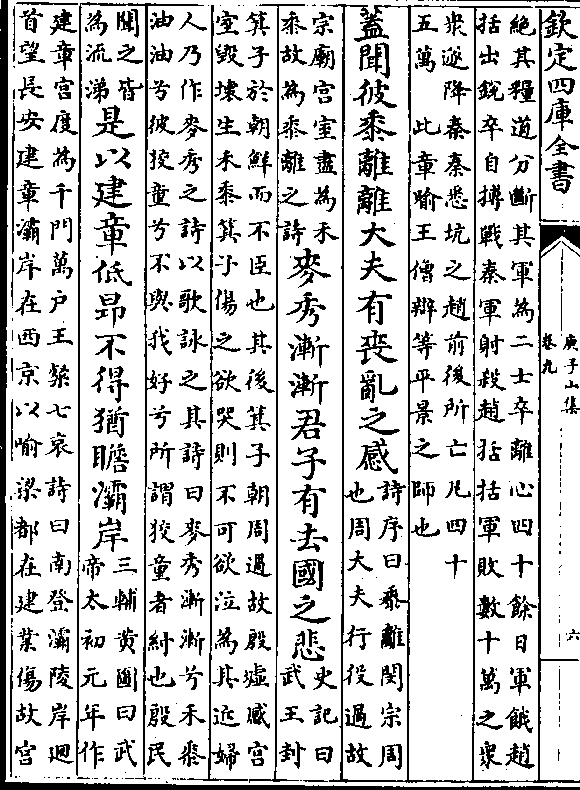 欽定四庫全書
庾子山集
卷九
六
絶其糧道分斷其軍為二士卒離心四十餘日軍餓趙
括出銳卒自搏戰秦軍射殺趙括括軍敗數十萬之衆
衆遂降秦秦悉坑之趙前後所亡凡四十
五萬　此章喻王僧辯等平景之師也
蓋聞彼黍離離大夫有喪亂之感
詩序曰黍離閔宗周
也周大夫行役過故
宗廟宫室盡為禾
黍故為黍離之詩
麥秀漸漸君子有去國之悲
史記曰
武王封
箕子於朝鮮而不臣也其後箕子朝周過故殷墟感宫
室毀壞生禾黍箕子傷之欲哭則不可欲泣為其近婦
人乃作麥秀之詩以歌詠之其詩曰麥秀漸漸兮禾黍
油油兮彼狡童兮不與我好兮所謂狡童者紂也殷民
聞之皆
為流涕
是以建章低昻不得猶瞻灞岸
三輔黄圖曰武
帝太初元年作
建章宫度為千門萬户王粲七哀詩曰南登灞陵岸迴
首望長安建章灞岸在西京以喻梁都在建業傷故宫